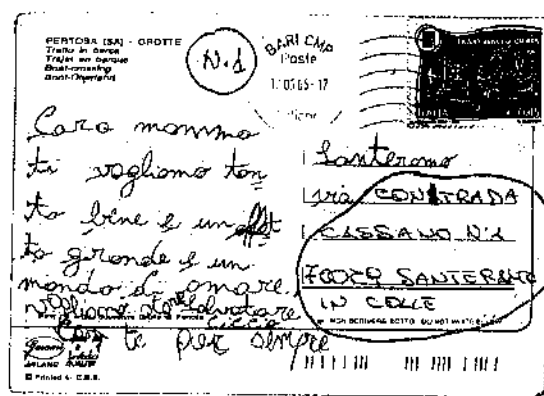 PERTOSA (SA) - GROTTE
Tratto in barca
Trajet en barque
Boat-crossing
Boot-Überfahrt
N. 1
BARI CMP
Poste
ITALIA
Cara momma
ti vogliamo tan
to bene e un
to grande e un
mondo di amare
vogliamo
con te per sempre
Santeramo
via CONTRADA
CASSANO N. 1
70029 SANTERAMO
IN COLLE
NON SCRIVERE SOTTO
MILANO
Printed